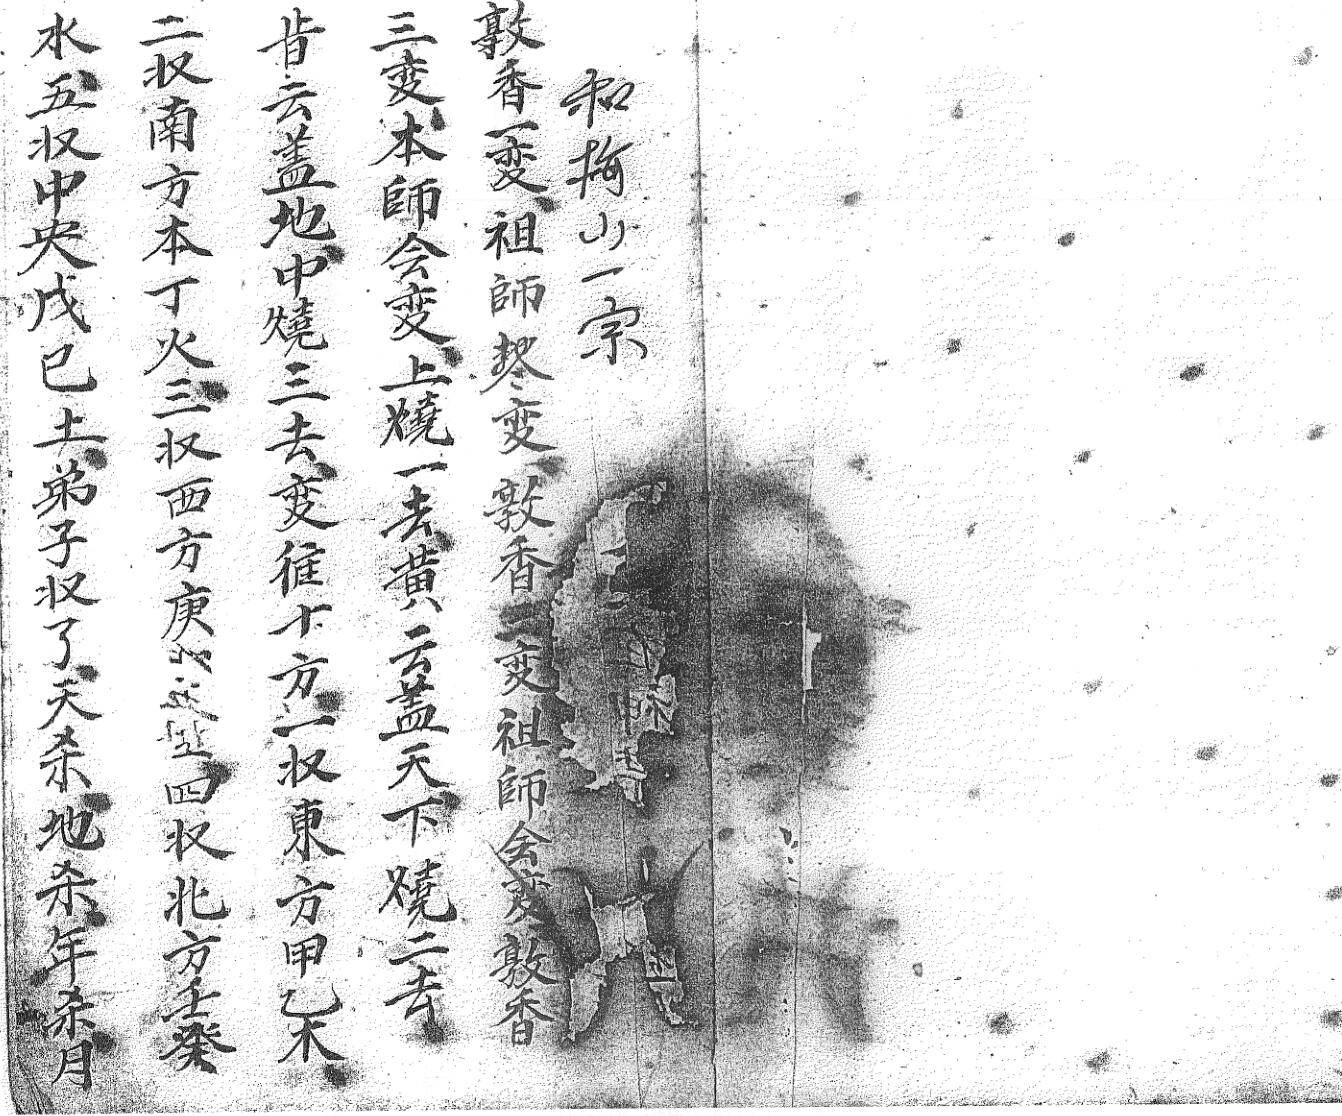 和梅山一宗
敦香一变祖師 变敦香二变祖師会变敦香
三变本師会变上燒一去黄云盖天下燒二去
昔云盖地中燒三去变徃十方一収東方甲乙木
二収南方本丁火三収西方庚 四収北方壬癸
水五収中央戊己土弟子収了天杀地杀年杀月